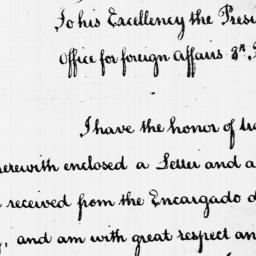 To his Excellency the Presi
Office for foreign Affairs 3d.
I have the honor of tra
herewith enclosed a Letter and a
received from the Encargado d
and am with great respect an